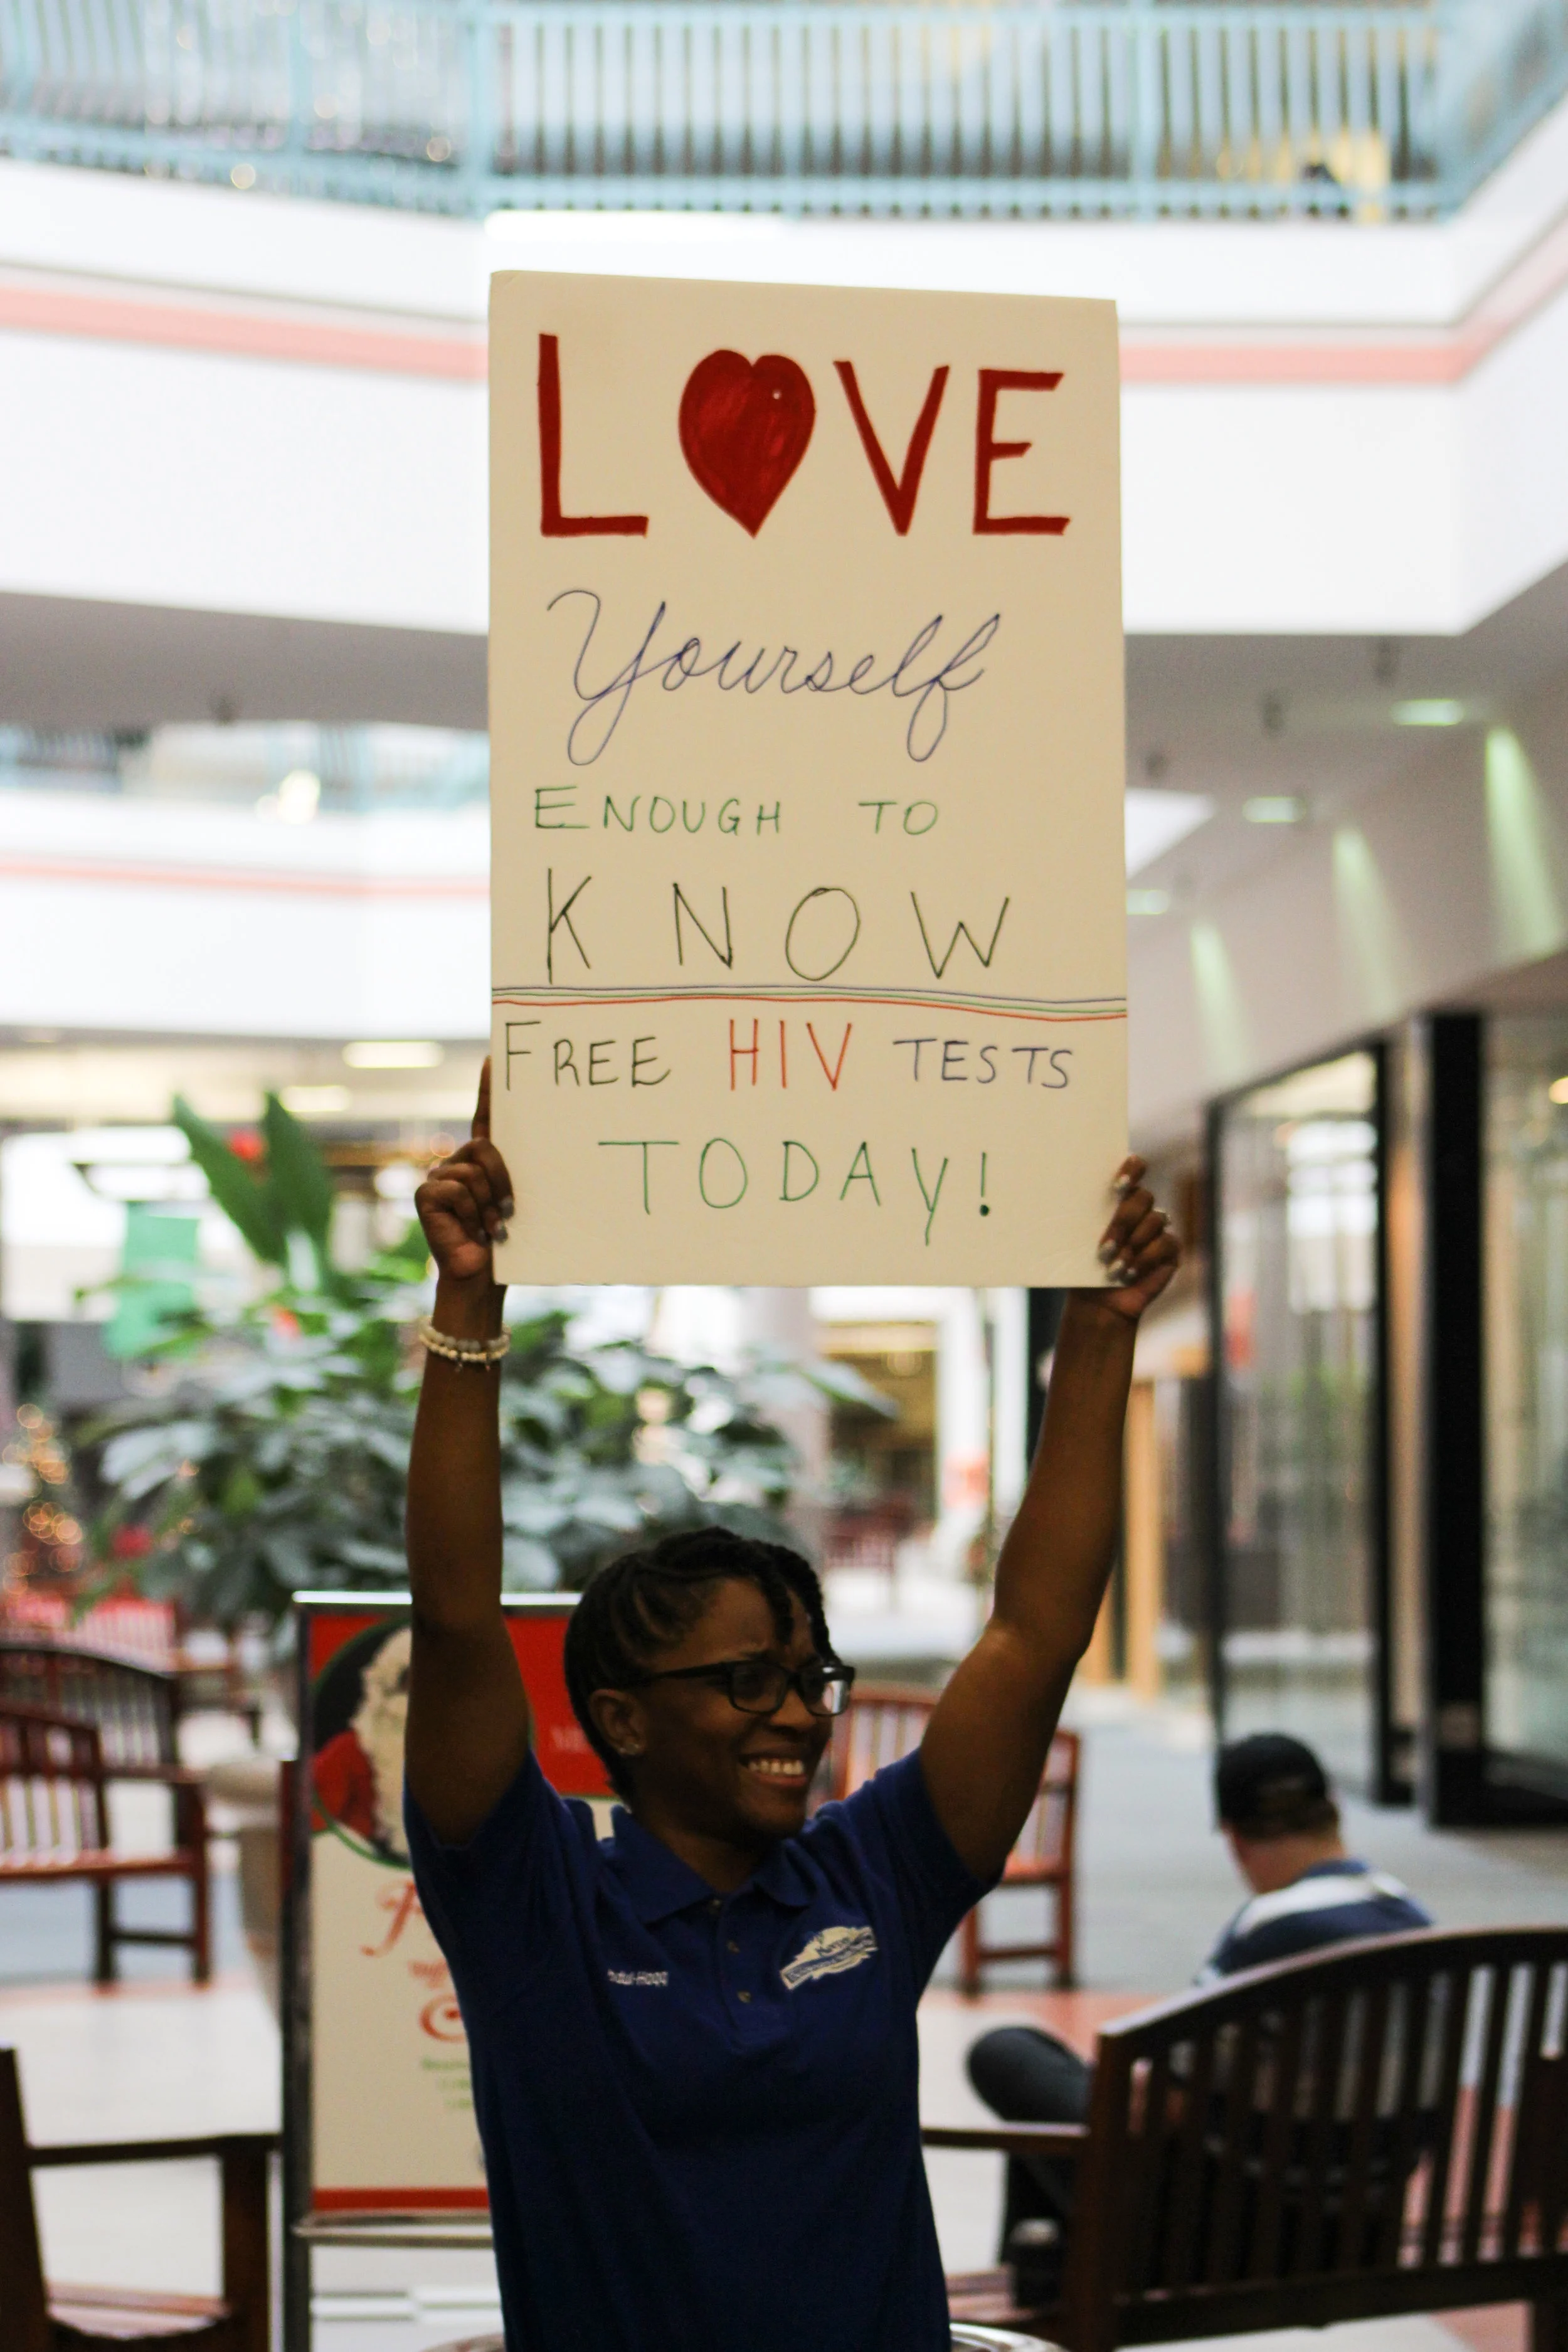 LOVE
Yourself
ENOUGH TO
KNOW
FREE HIV TESTS
TODAY!